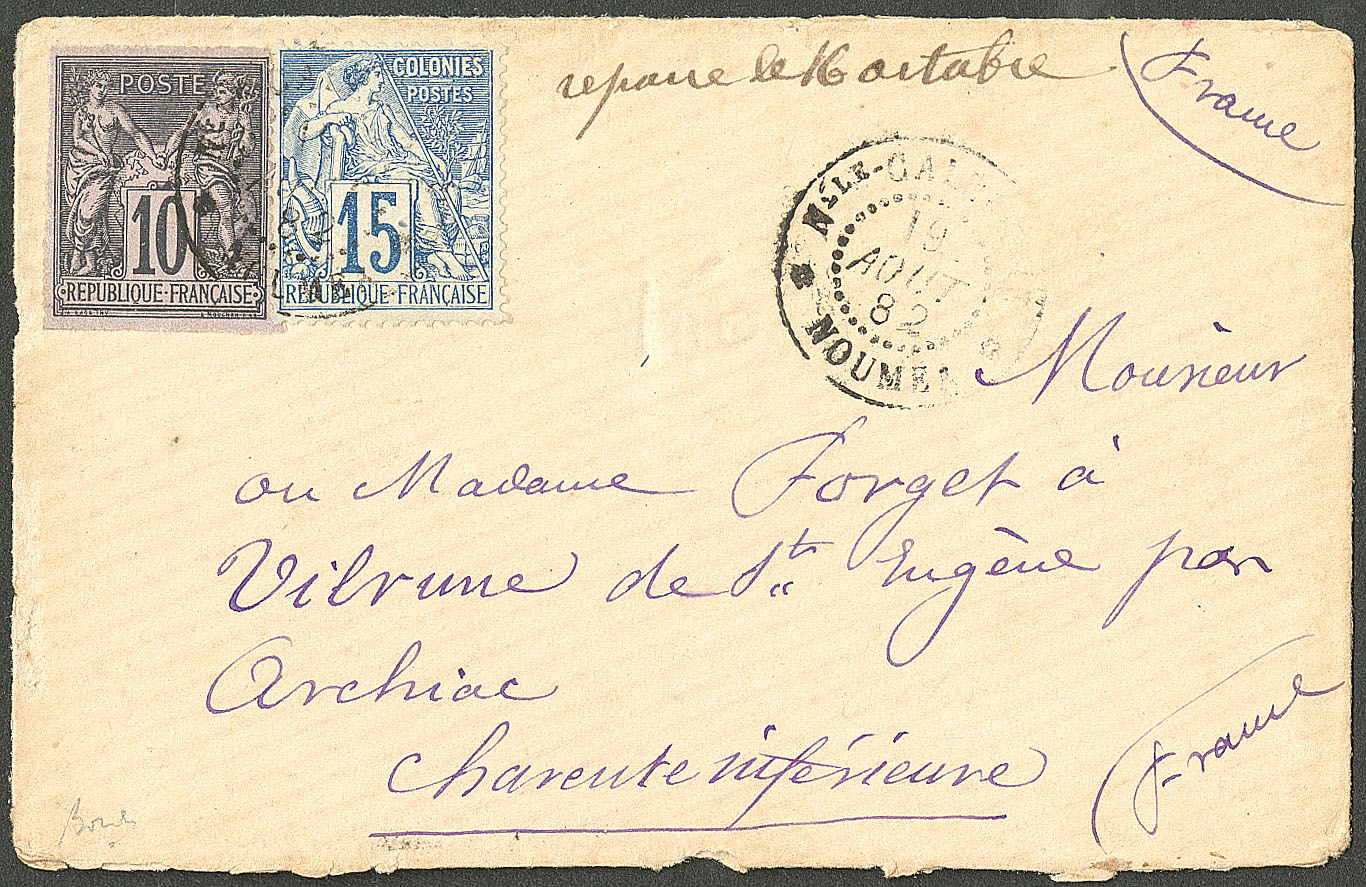 POSTE
10
REPUBLIQUE·FRANÇAISE
COLONIES
POSTES
15
REPUBLIQUE·FRANÇAISE
repone le 16 octobre
France
NLLE-CAL
19
AOUT
82
NOUMEA
Monsieur
ou Madame Forget à
Vilrune de St Eugène par
Archiac
Charente inférieure
France